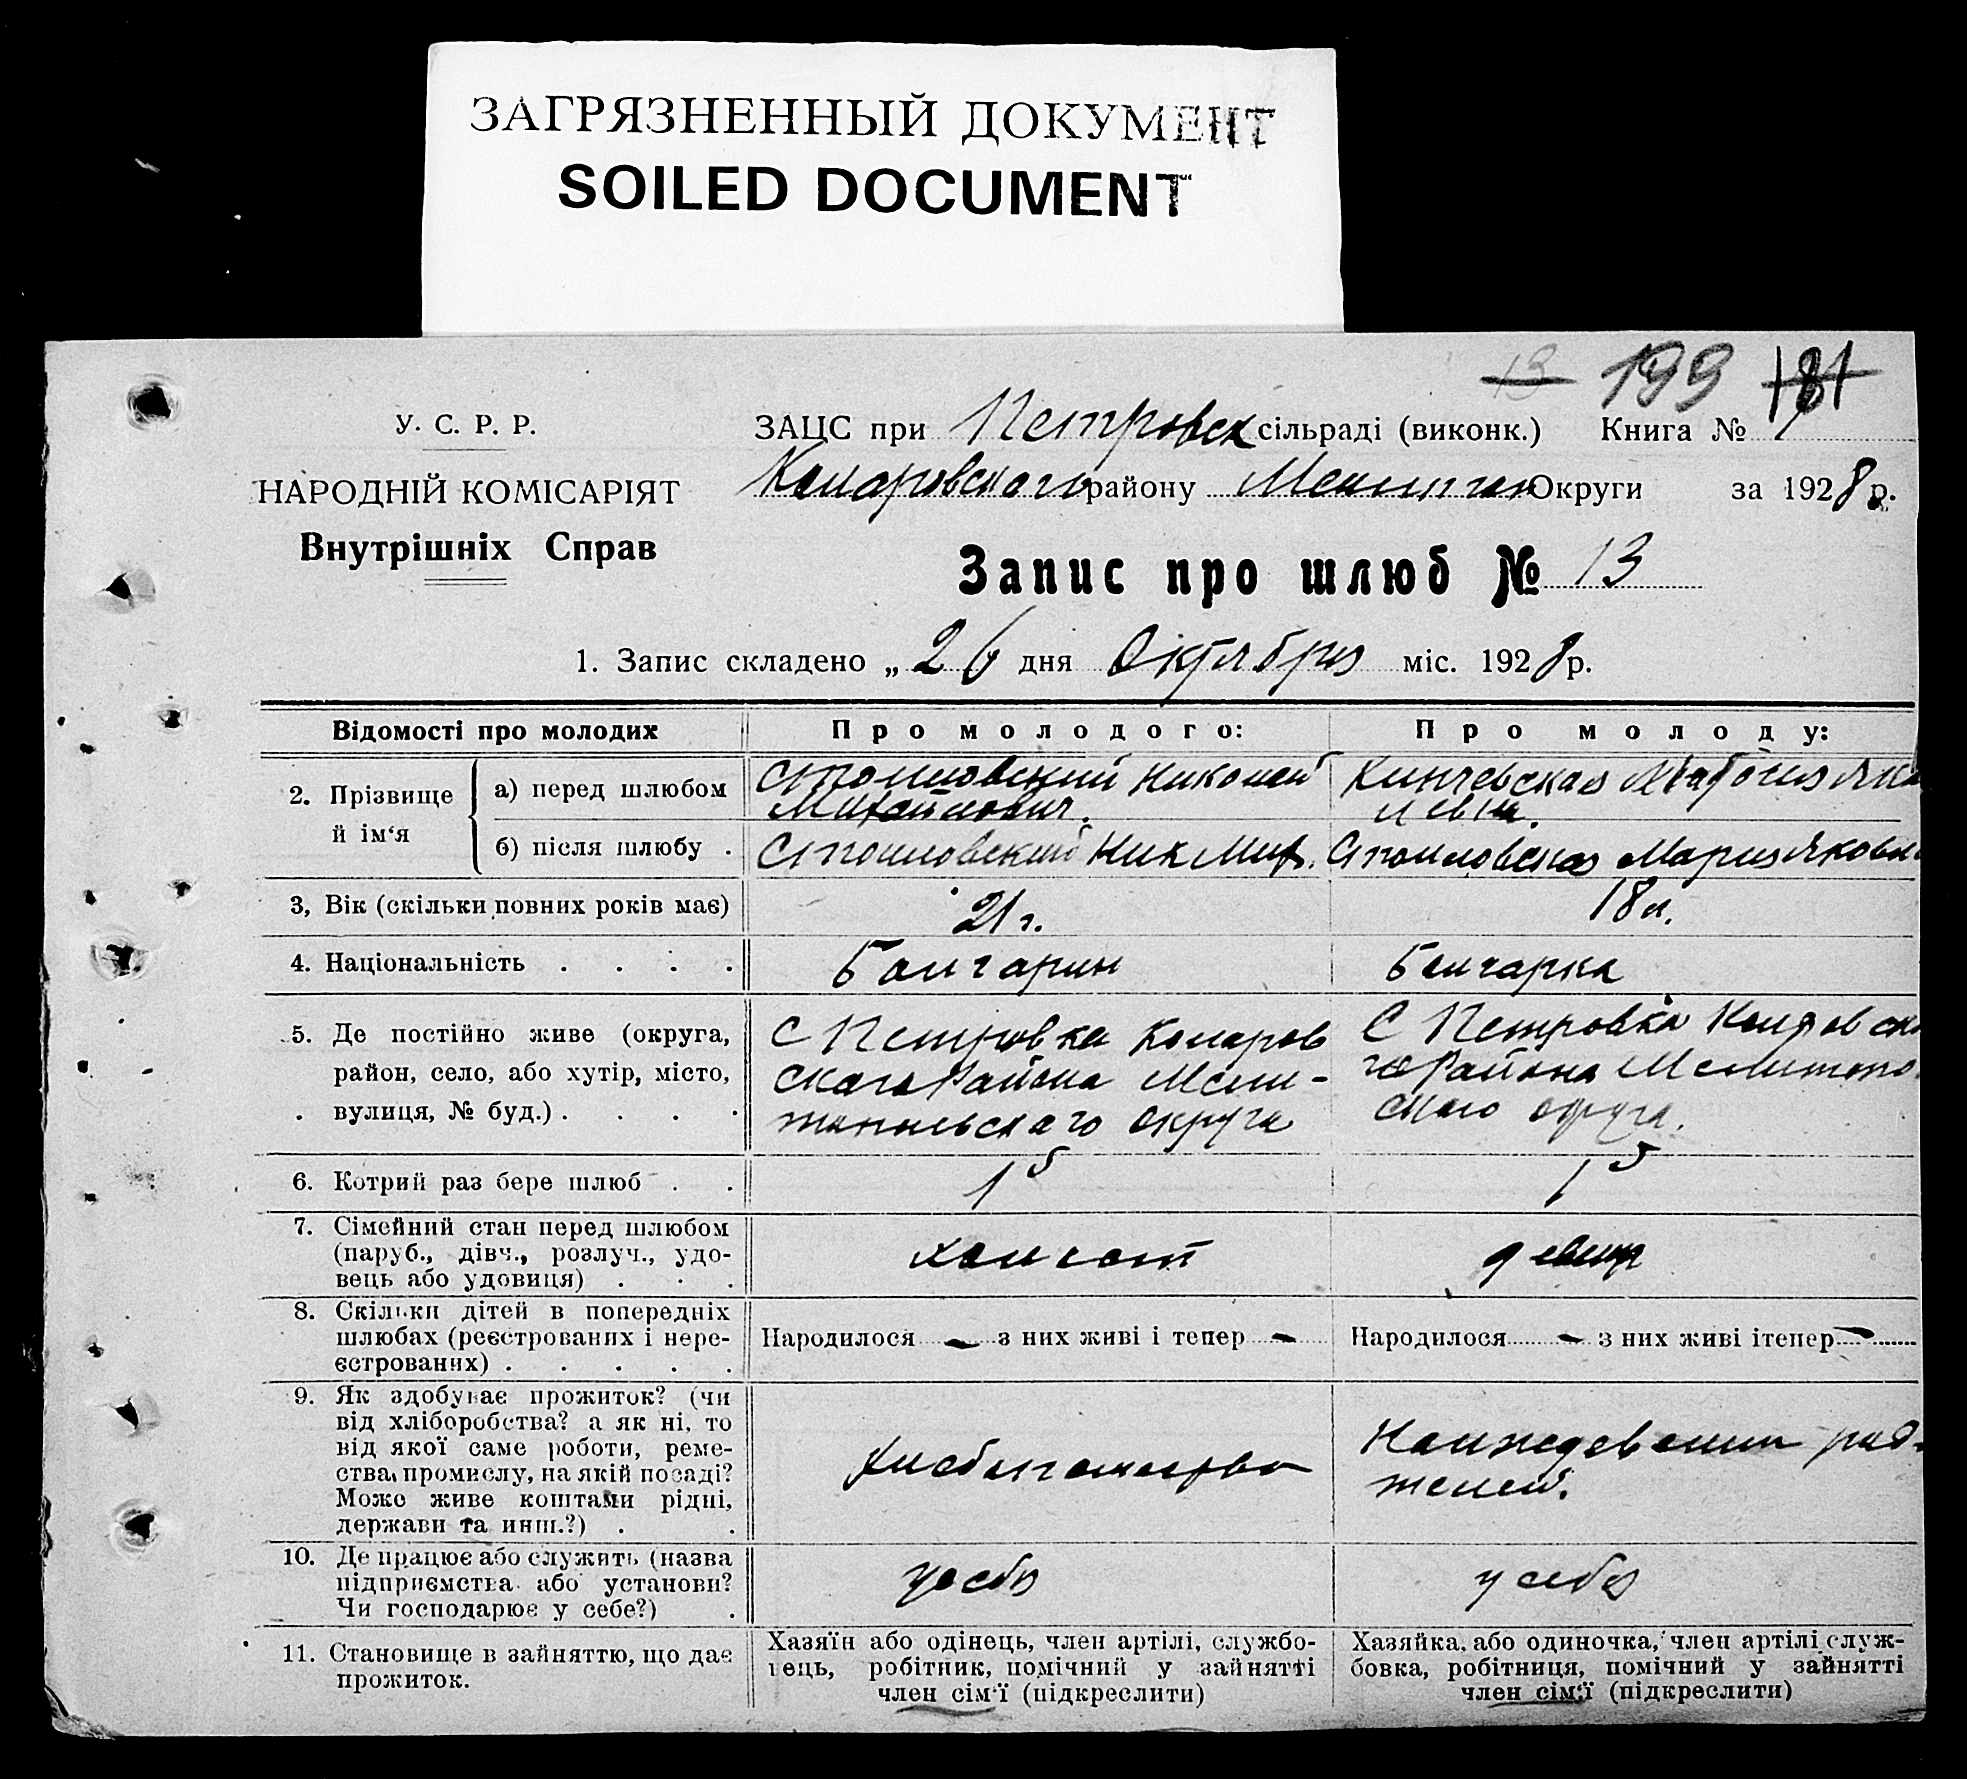 ЗАГРЯЗНЕННЫЙ ДОКУМЕНТ
SOILED DOCUMENT
13 199 181
У. С. Р. Р.
НАРОДНІЙ КОМІСАРІЯТ
Внутрішніх Справ
ЗАЦС при Петровск сільраді (виконк.) Книга №
району Округи за 1928 р.
Запис про шлюб № 13
1. Запис складено „ 26 дня Октября міс. 1928 р.
Відомості про молодих Про молодого: Про молоду:
2. Прізвище й ім'я
а) перед шлюбом Николай
Михайлович.
б) після шлюбу . Ник Мих. Мария Яковл
3, Вік (скільки повних років має) 21 г. 18 л.
4. Національність . . . . Болгарин Болгарка
5. Де постійно живе (округа,
район, село, або хутір, місто,
вулиця, № буд.) . . . .
С Петровка Коларов
ского Района Мели-
топольского округа
С Петровка
го Района Мелитопо
ского округа.
6. Котрий раз бере шлюб . . 1 1
7. Сімейний стан перед шлюбом
(паруб., дівч., розлуч., удо-
вець або удовиця) . . .
холост девица
8. Скільки дітей в попередніх
шлюбах (реєстрованих і нере-
єстрованих) . . . . .
Народилося - з них живі і тепер - Народилося - з них живі ітепер -
9. Як здобуває прожиток? (чи
від хліборобства? а як ні, то
від якої саме роботи, реме-
ства, промислу, на якій посаді?
Може живе коштами рідні,
держави та инш.?) . .
На иждевении род-
телей.
10. Де працює або служить (назва
підприємства або установи?
Чи господарює у себе?) .
у себя у себя
11. Становище в зайняттю, що дає
прожиток.
Хазяїн або одінець, член артілі, службо-
вець, робітник, помічний у зайнятті
член сім'ї (підкреслити)
Хазяйка, або одиночка, член артілі, служ-
бовка, робітниця, помічний у зайнятті
член сім'ї (підкреслити)